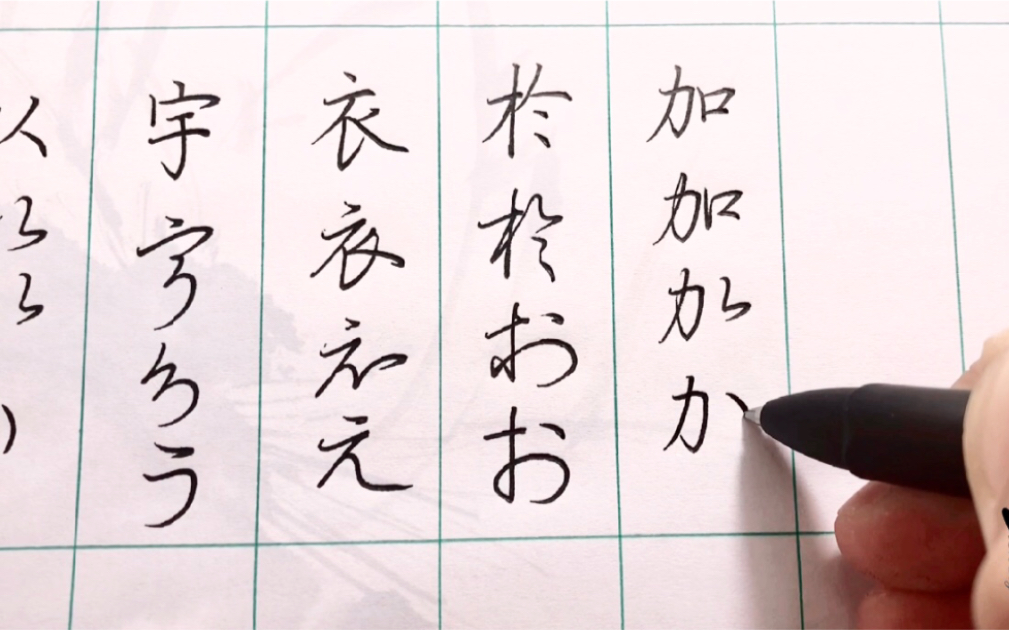 宇宇うう
衣衣ええ
於於おお
加加かか